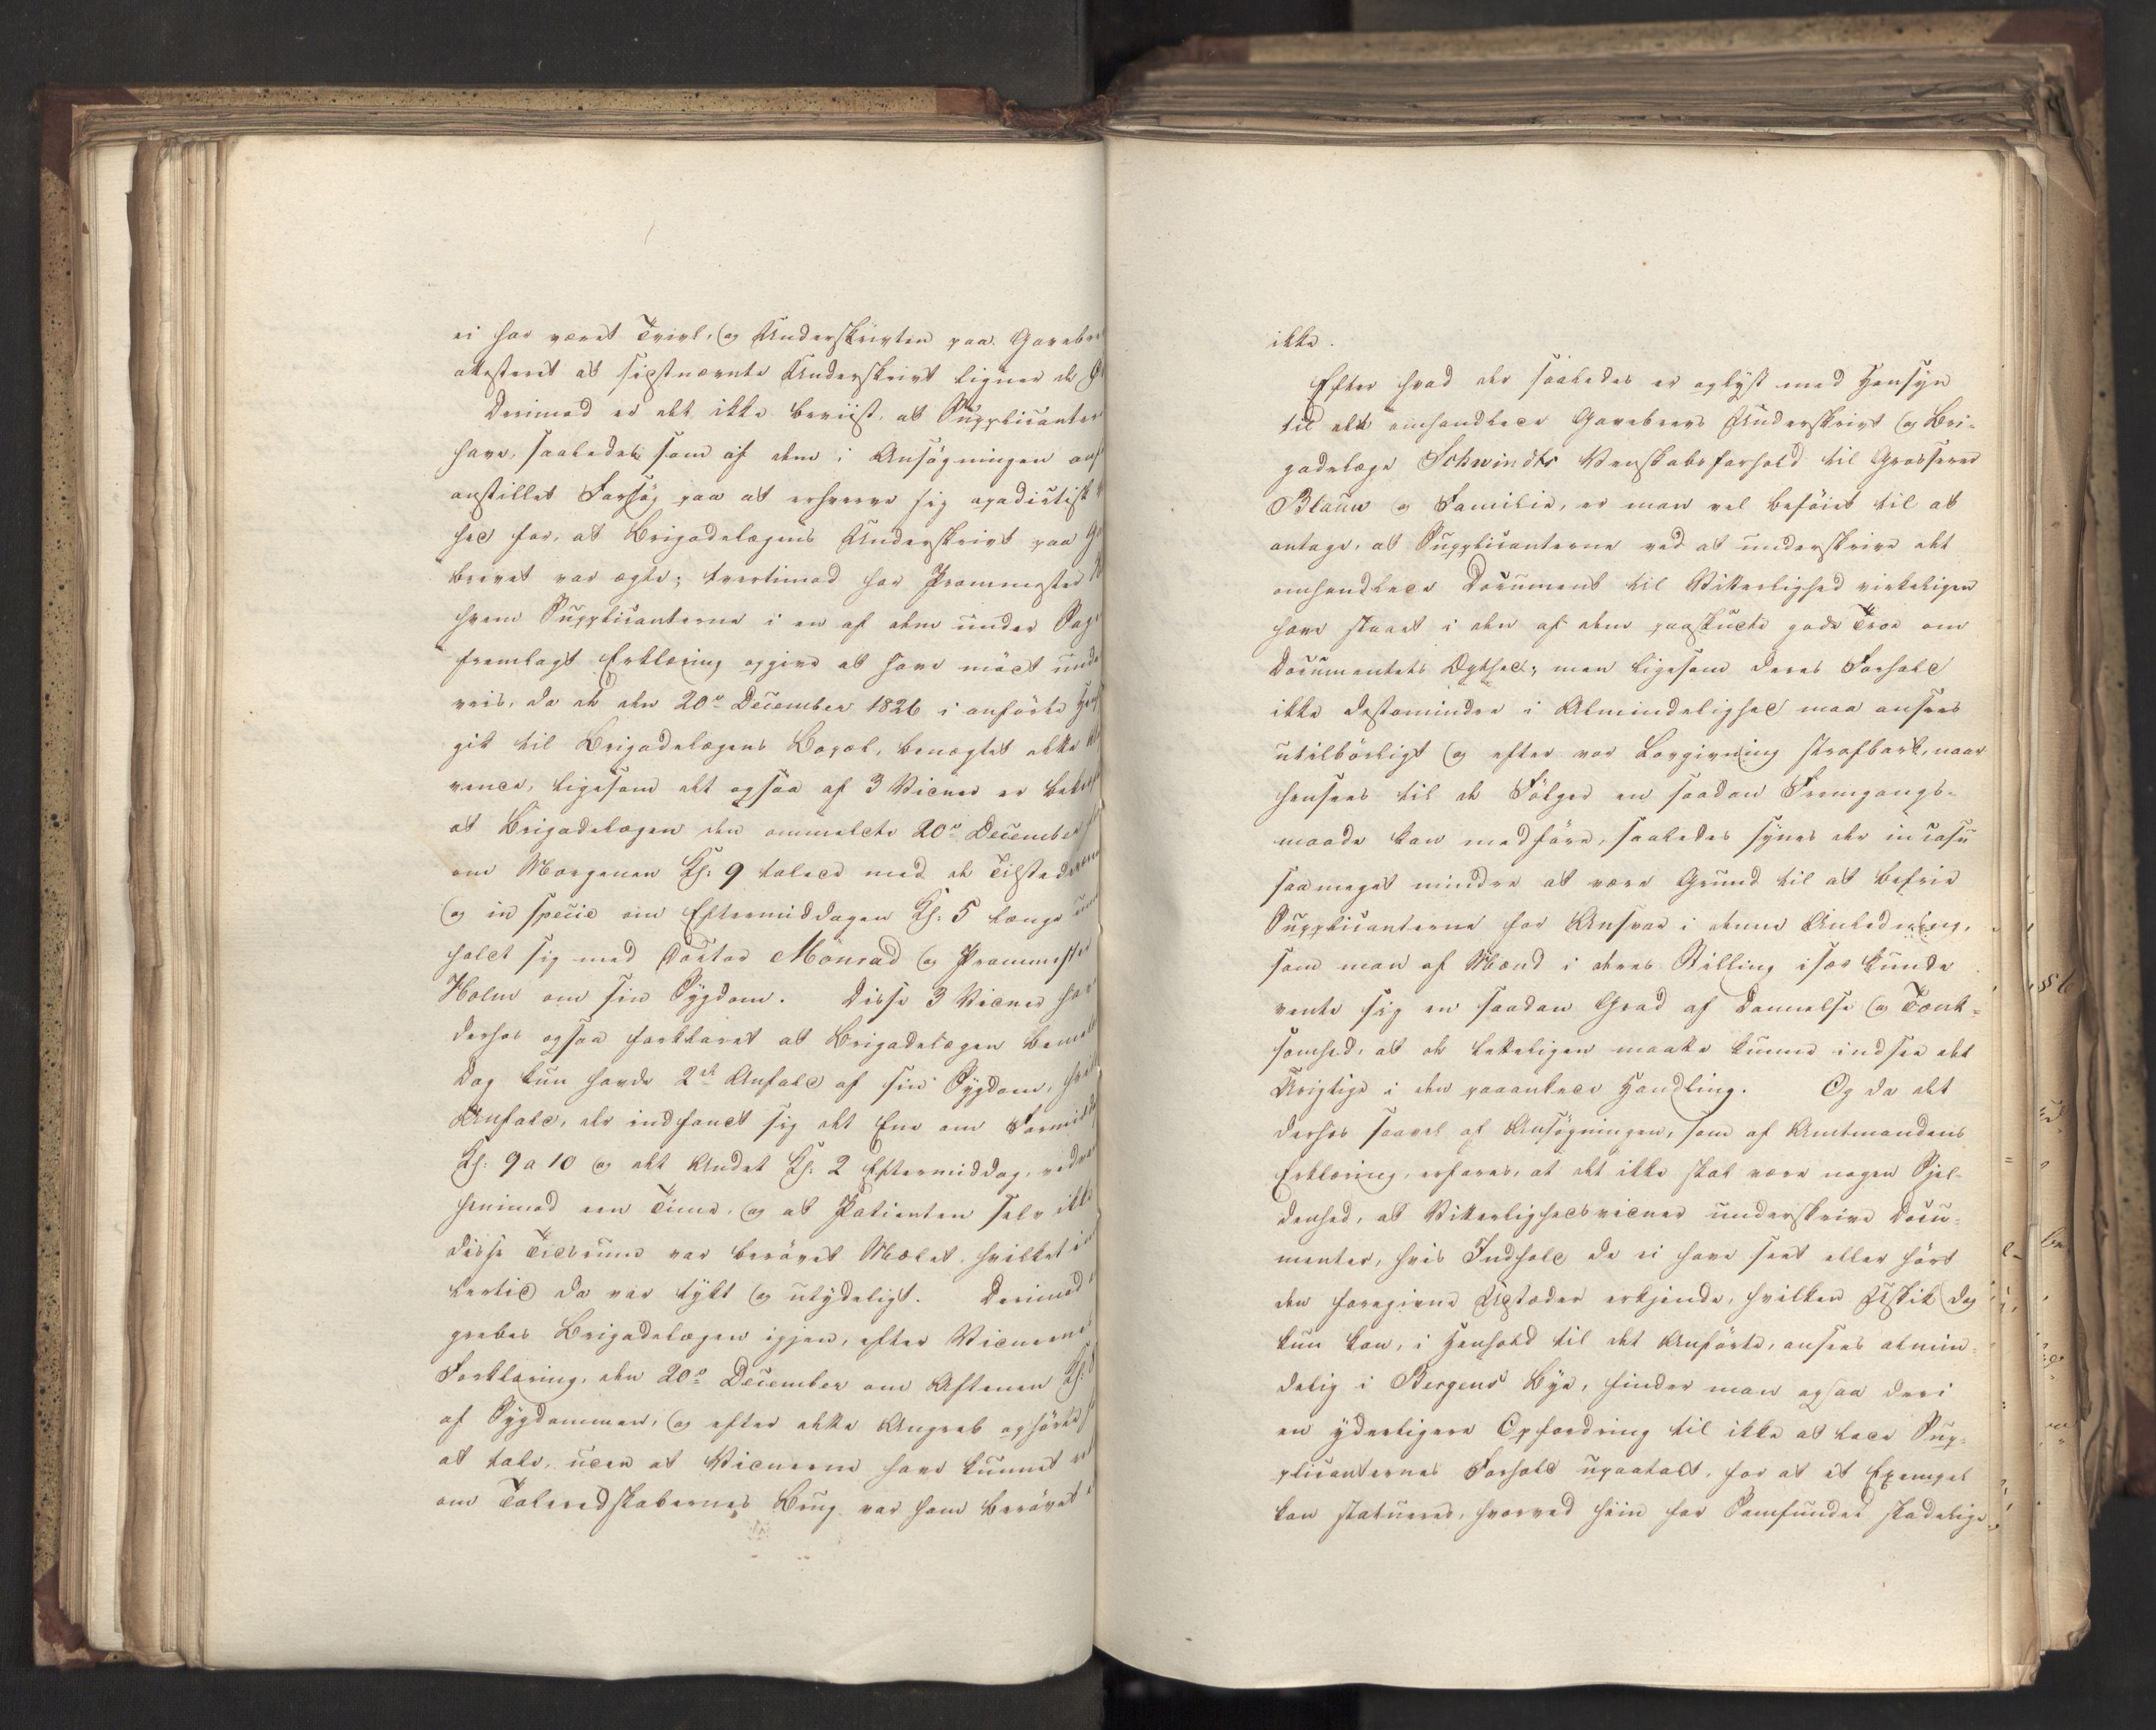 ei har været Tvivl, og Underskrivten paa Gavebre
attesteret at sidstnævnte Underskrivt ligner de
Derimod er det ikke beviist, at Supplicanter
have, saaledes som af dem i Ansøgningen anf
anstillet Forsøg paa at erhverve sig apodictisk
hed for, at Brigadelægens Underskrivt paa G
brevet var ægte; tvertimod har Prammester
hvem Supplicanterne i en af dem under Sag
fremlagt Erklæring opgive at have mødt unde
veis, da de den 20de December 1826 i anførte Hens
gik til Brigadelægens Bopæl, benægtet dette
vende, ligesom det ogsaa af 3 Vidner er bekræf
at Brigadelægen den ommeldte 20de December
om Morgenen Kl: 9 talede med de Tilstedevære
og in specie om Eftermiddagen Kl: 5 længe und
holdt sig med Doctor Monrad og Prammester
Holm om sin Sygdom. Disse 3 Vidner har
derhos ogsaa forklaret at Brigadelægen bemeldte
Dag kun havde 2de Anfald af sin Sygdom, hvilke
Anfald, der indfandt sig det Ene om Formidd
Kl: 9 a 10 og det Andet Kl: 2 Eftermiddag, vedva
henimod een Time, og at Patienten selv ikke
disse Tidsrum var berøvet Mælet, hvilket im
lertid da var tykt og utydeligt. Derimod
grebes Brigadelægen igjen, efter Vidnernes
Forklaring, den 20de December om Aftenen Kl: 8
af Sygdommen, og efter dette Angreb ophørte
at tale, uden at Vidnerne have kunnet
om Taleredskabernes Brug var ham berøvet
ikke.
Efter hvad der saaledes er oplyst med Hensyn
til det omhandlede Gavebrevs Underskrivt og Bri-
gadelæge Schwindts Venskabsforhold til Grosserer
Blauw og Familie, er man vel beføiet til at
antage, at Supplicanterne ved at underskrive det
omhandlede Document til Vitterlighed virkeligen
have staaet i den af dem paaskudte gode Troe om
Documentets Ægthed; men ligesom deres Forhold
ikke destomindre i Almindelighed maa ansees
utilbørligt og efter vor Lovgivning strafbart, naar
hensees til de Følger en saadan Fremgangs-
maade kan medføre, saaledes synes der in casu
saameget mindre at være Grund til at befrie
Supplicanterne for Ansvar i denne Anledning,
som man af Mænd i deres Stilling især kunde
vente sig en saadan Grad af Dannelse og Tænk-
somhed, at de letteligen maatte kunne indsee det
Urigtige i den paaankede Handling. Og da det
derhos saavel af Ansøgningen, som af Amtmandens
Erklæring, erfares, at det ikke skal være nogen Sjel-
denhed, at Vitterlighedsvidner underskrive Docu-
menter, hvis Indhold de ei have seet eller hørt
den foregivne Udstæder erkjende, hvilken Uskik dog
kun kan, i Henhold til det Anførte, ansees almin-
delig i Bergens Bye, finder man ogsaa deri
en yderligere Opfordring til ikke at lade Sup-
plicanternes Forhold upaatalt, for at et Exempel
kan statueres, hvorved hiin for Samfundet skadelige